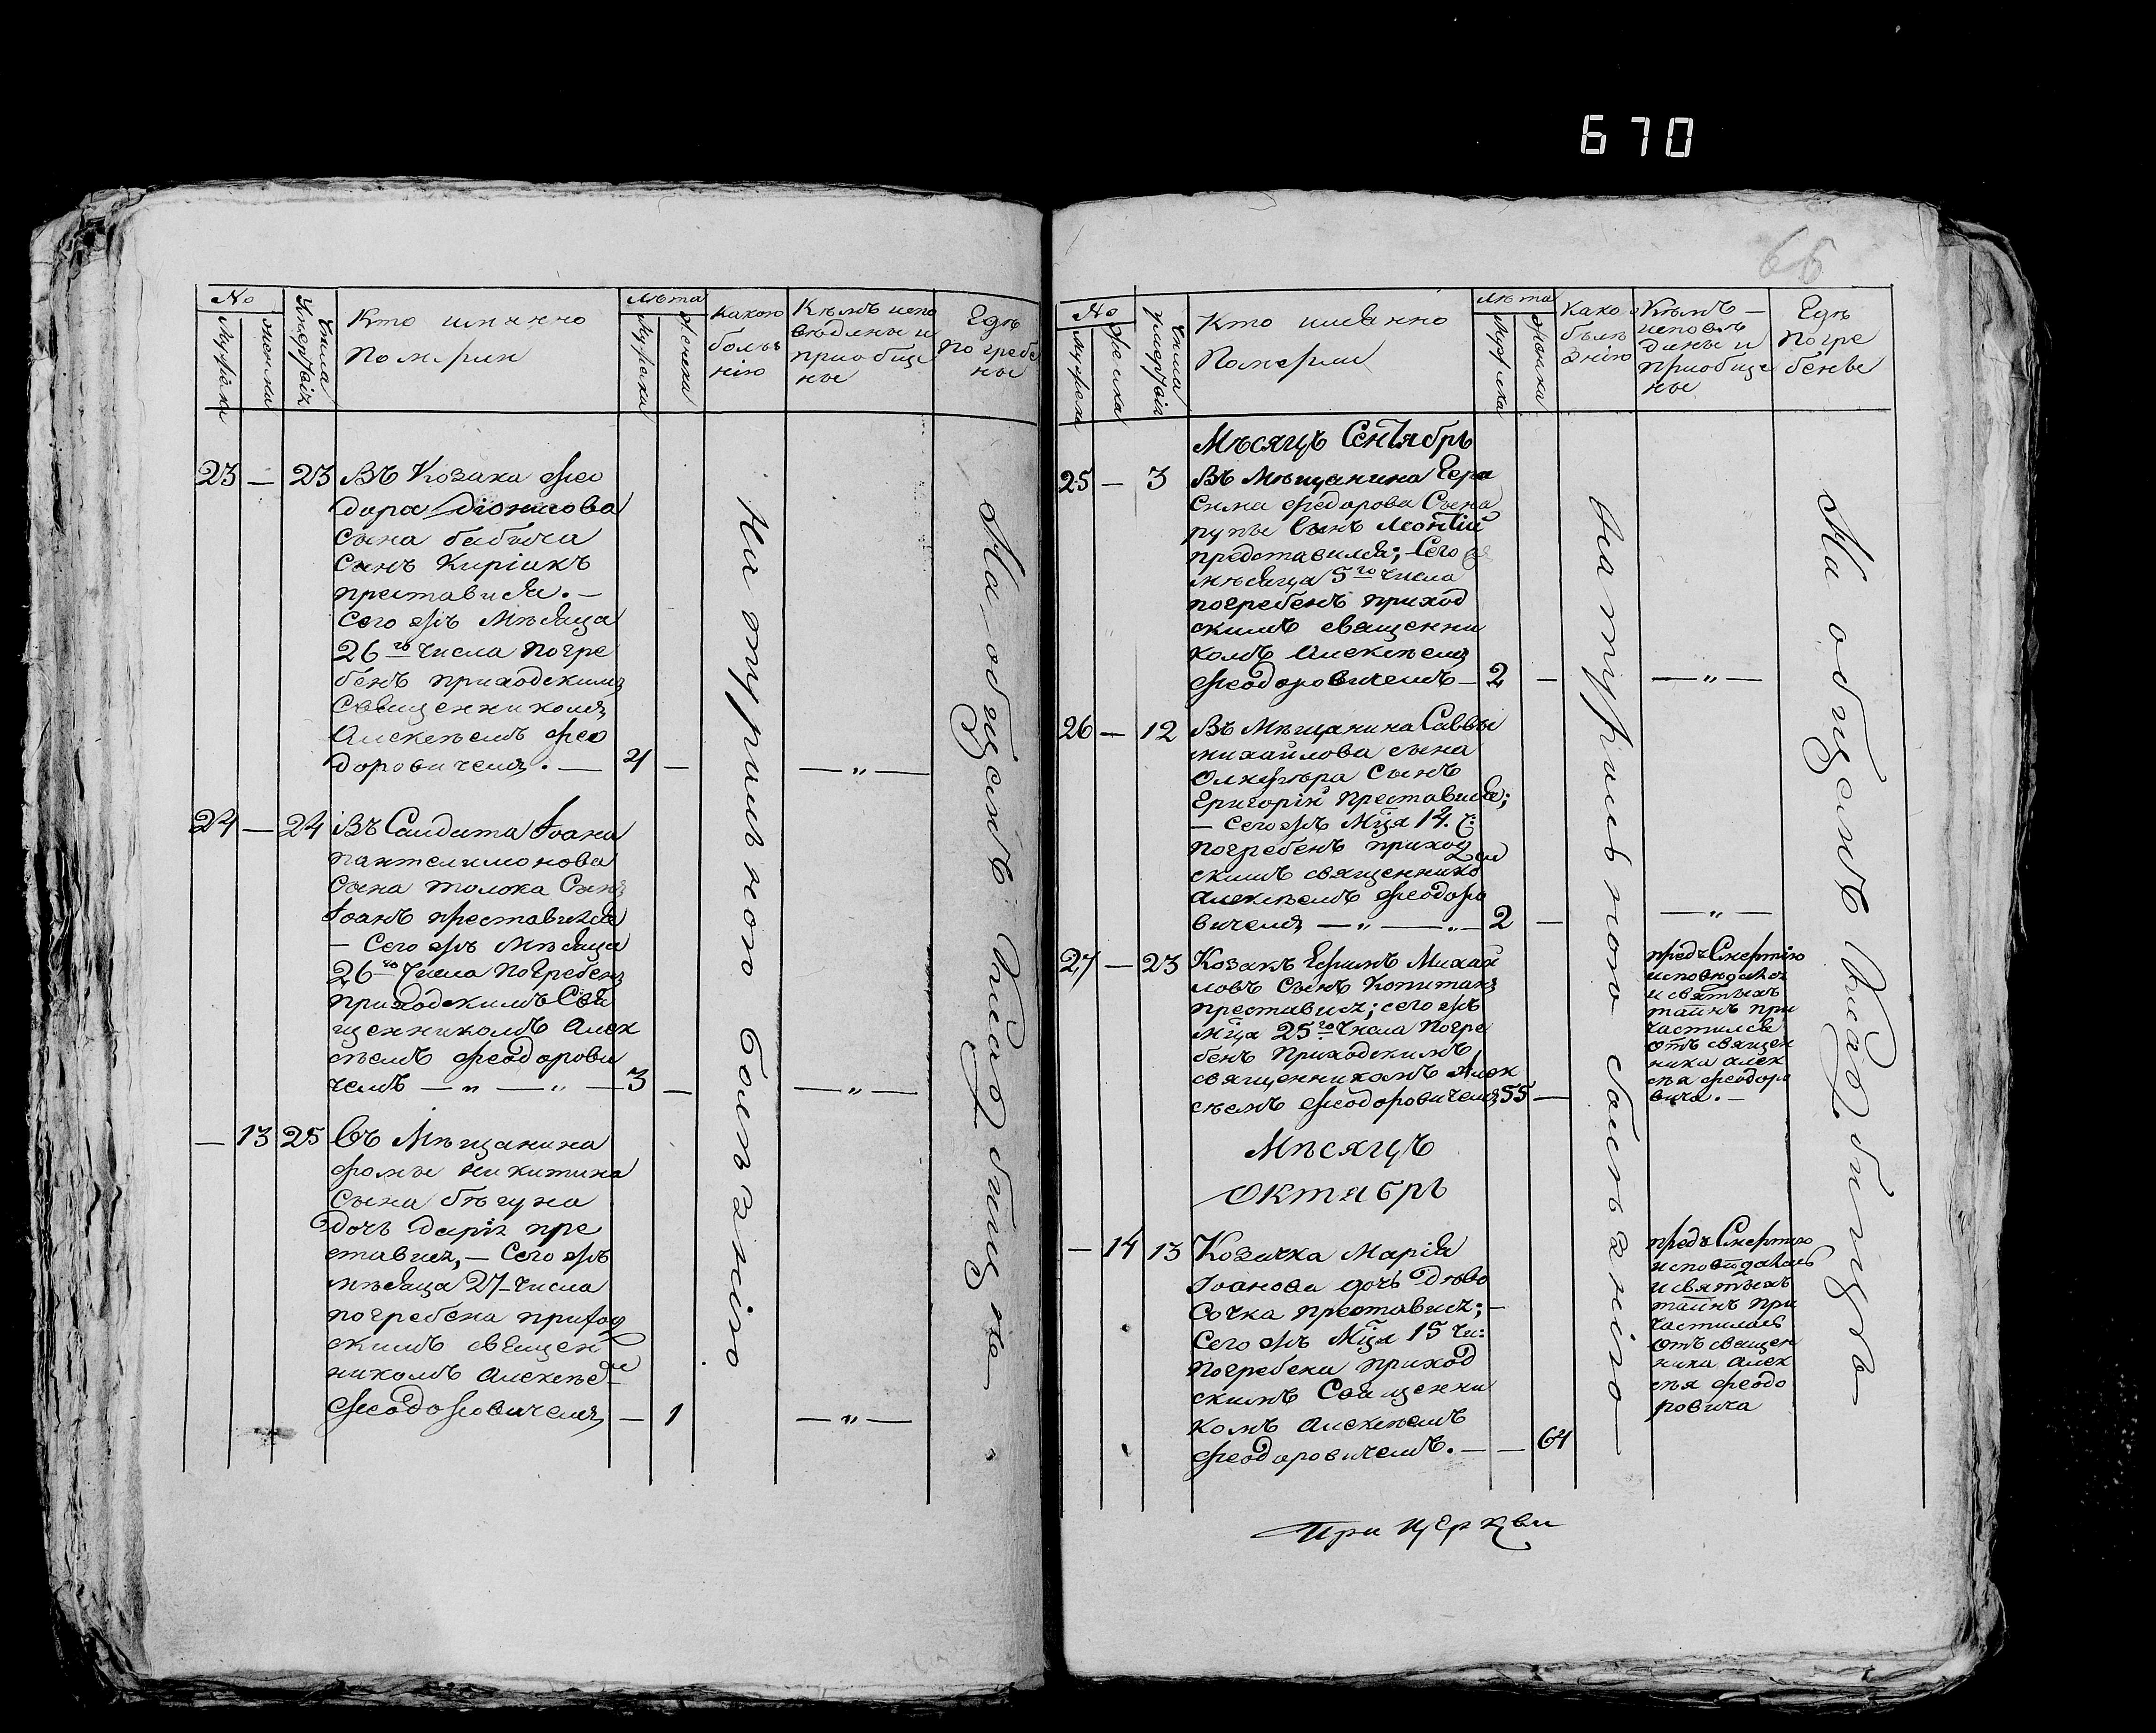 670
66
№
Лѣта
Мужеска
женска
Числа
Умертвія
Кто имянно
Померли
Мужеска
Женска
Какою
болѣз
нію
Кѣмъ испо
вѣданы и
приобще
ны
Гдѣ
погребе
ны
23 — 23 Въ Козака Ѳео
дора Діонисова
Сына бабыча
Сынъ Киріакъ
преставися. —
Сего жъ Мѣсяца
26го числа погре
бенъ приходскимъ
Священникомъ
Алексѣемъ Ѳео
доровичемъ. — 4 — — „ —
24 — 24 Въ Солдата Іоана
пантелимонова
Сына толока Сынъ
Іоанъ преставися
— Сего жъ Мѣсяца
26го Числа погребенъ
приходскимъ Свя
щенникомъ Алек
сѣемъ Ѳеодорови
чемъ — „ — „ — 3 — — „ —
— 13 25 Въ Мѣщанина
Ѳомы никитина
Сына бѣгуна
Дочъ Дарія пре
ставися, — Сего жъ
мѣсяца 27 числа
погребена приход
скимъ священ
никомъ Алексѣе
Ѳеодоровичемъ — 1 — „ —
Натуральною болѣзнію
На общемъ кладбищѣ
№
Мужеска
Женска
Числа
умертвія
Кто имянно
Померли
Лѣта
Муж ска
Женска
Како
болѣ
знію
Кѣмъ —
исповѣ
даны и
приобще
ны
Гдѣ
погре
бены
Мѣсяцъ Сентябрь
25 — 3 Въ Мѣщанина Гера
сима Ѳедорова Сына
рупы Сынъ Леонтій
представился; — Сего
мѣсяца 5го числа
погребенъ приход
скимъ священни
комъ Алексѣемъ
Ѳеодоровичемъ — 2 — — „ —
26 — 12 Въ Мѣщанина Саввы
михайлова сына
Сынъ
Григорій преставися;
— Сего жъ Мца 14. Ч
погребенъ приход
скимъ священнико
Алексѣемъ Ѳеодоро
вичемъ — „ — „ — 2 — — „ —
27 — 23 Козакъ Ефимъ Михаи
ловъ Сынъ Копитанъ
преставися; сего жъ
Мца 25го Числа погре
бенъ приходскимъ
священникомъ Алек
сѣемъ Ѳеодоровичемъ 55 —
предъ Смертію
исповѣдался
и святыхъ
тайнъ при
частился
отъ священ
ника алек
сѣа Ѳеодоро
вича. —
Мѣсяцъ
Октябрь
— 14 13 Козачка Марія
Іоанова дочъ Дюво
Сочка преставися; —
Сего жъ Мца 15 Чи:
погребена приход
скимъ Священни
комъ Алексѣемъ
Ѳеодоровичемъ. — — 64
предъ Смертію
исповѣдалась
и святыхъ
тайнъ при
частилась
отъ священ
ника алек
сѣя Ѳеодо
ровича
натуральною болѣзнію
На общемъ кладбищѣ
При церкви